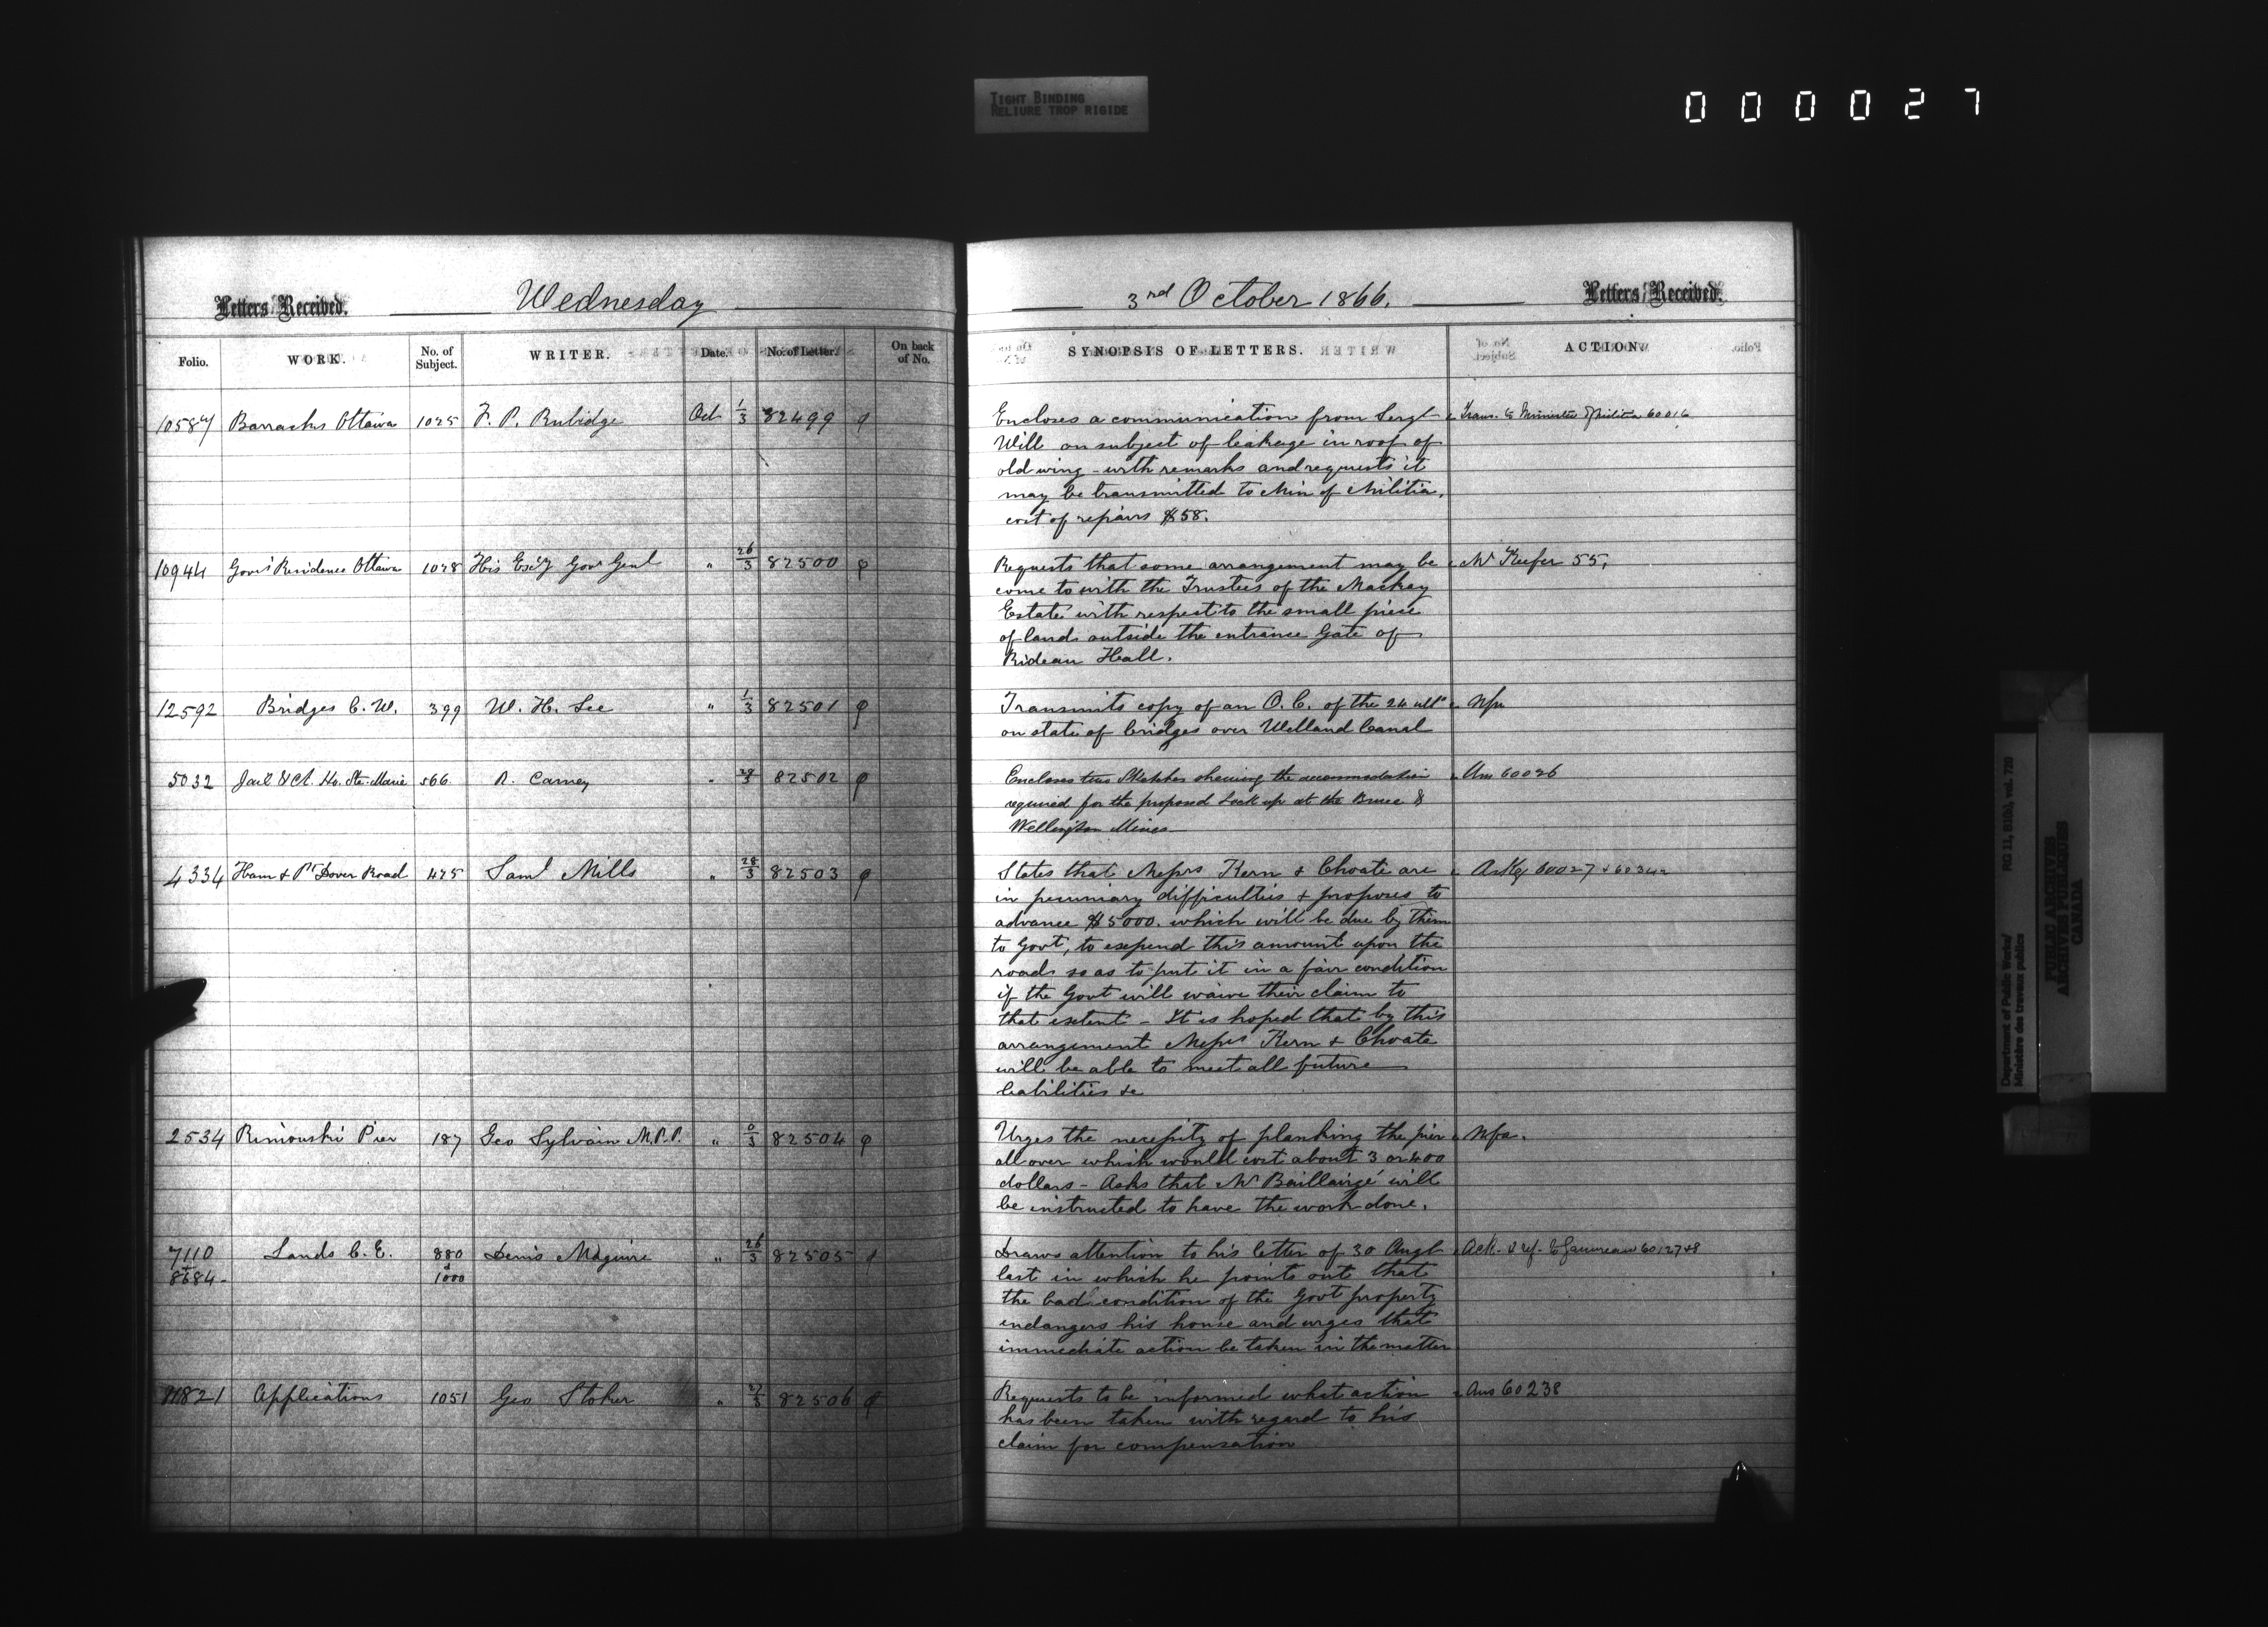 TIGHT BINDING
RELIURE TROP RIGIDE
000027
Letters Received. Wednesday
Folio. WORK. No. of Subject. WRITER. Date. No. of Letter On back of No.
Barracks Ottawa 1025 F. P. Rubidge Oct 1/3 82499
10944 Govr's Residence Ottawa 1028 His Excy Govr Genl " 26/3 82500
12592 Bridges C. W. 399 W. H. Lee " 1/3 82501
5032 Jail & Ct. Ho. Ste. Marie 566 Carney " 82502
4334 Ham & Pt Dover Road 425 Saml Mills " 28/3 82503
2534 Rimouski Pier 187 Geo Sylvain M.P.P. " 82504
7110 Lands C. E. 880 Denis Maguire " 26/3 82505
& &
8684 1000
11821 Applications 1051 Geo Stoker " 27/3 82506
3rd October 1866. Letters Received.
SYNOPSIS OF LETTERS. ACTION.
Encloses a communication from Sergt Trans. to Minister of Militia 60016
Will on subject of leakage in roof of
old wing - with remarks and requests it
may be transmitted to Min of Militia,
cost of repairs $58.
Requests that some arrangement may be Mr Keefer 55,
come to with the Trustees of the Mackay
Estate with respect to the small piece
of land outside the entrance Gate of
Rideau Hall.
Transmits copy of an O. C. of the 24 ulto Nfa
on state of bridges over Welland Canal
Encloses two Sketches shewing the accommodation Ans 60026
required for the proposed Lock up at the Bruce &
Wellington Mines
States that Messrs Kern & Choate are Ackg 60027 &
in pecuniary difficulties & proposes to
advance $5000. which will be due by them
to Govt, to expend this amount upon the
roads so as to put it in a fair condition
if the Govt will waive their claim to
that extent - It is hoped that by this
arrangement Messrs Kern & Choate
will be able to meet all future
liabilities &c
Urges the necessity of planking the pier Nfa.
all over which would cost about 3 or 400
dollars - Asks that Mr Baillairgé will
be instructed to have the work done.
Draws attention to his letter of 30 Augt Ack. & ref. to Gauvreau 60127&8
last in which he points out that
the bad condition of the Govt property
endangers his house and urges that
immediate action be taken in the matter
Requests to be informed what action Ans 60238
has been taken with regard to his
claim for compensation
Department of Public Works/ RG 11, B1(b), vol. 720
Ministère des travaux publics
PUBLIC ARCHIVES
ARCHIVES PUBLIQUES
CANADA